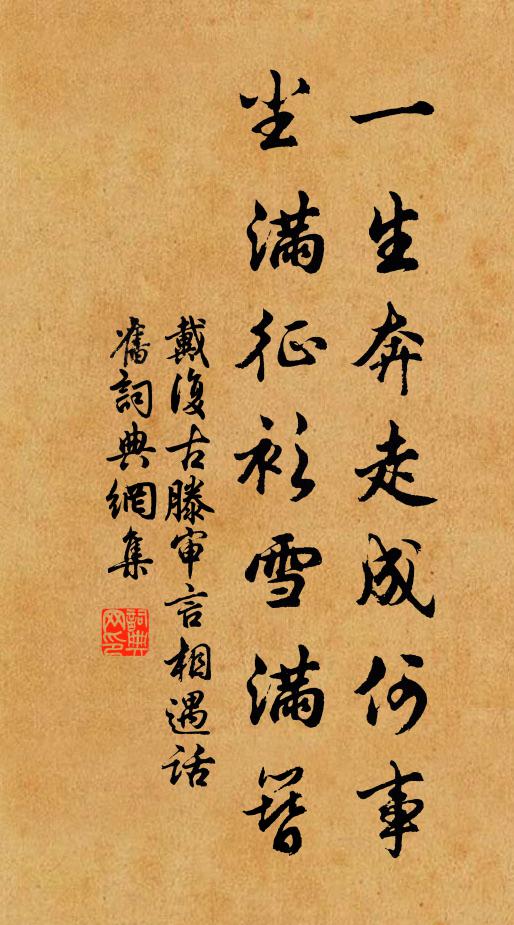 一生奔走成何事
尘满征衫雪满簪
戴復古滕审言相遇话
舊詞典網集
詞典网印